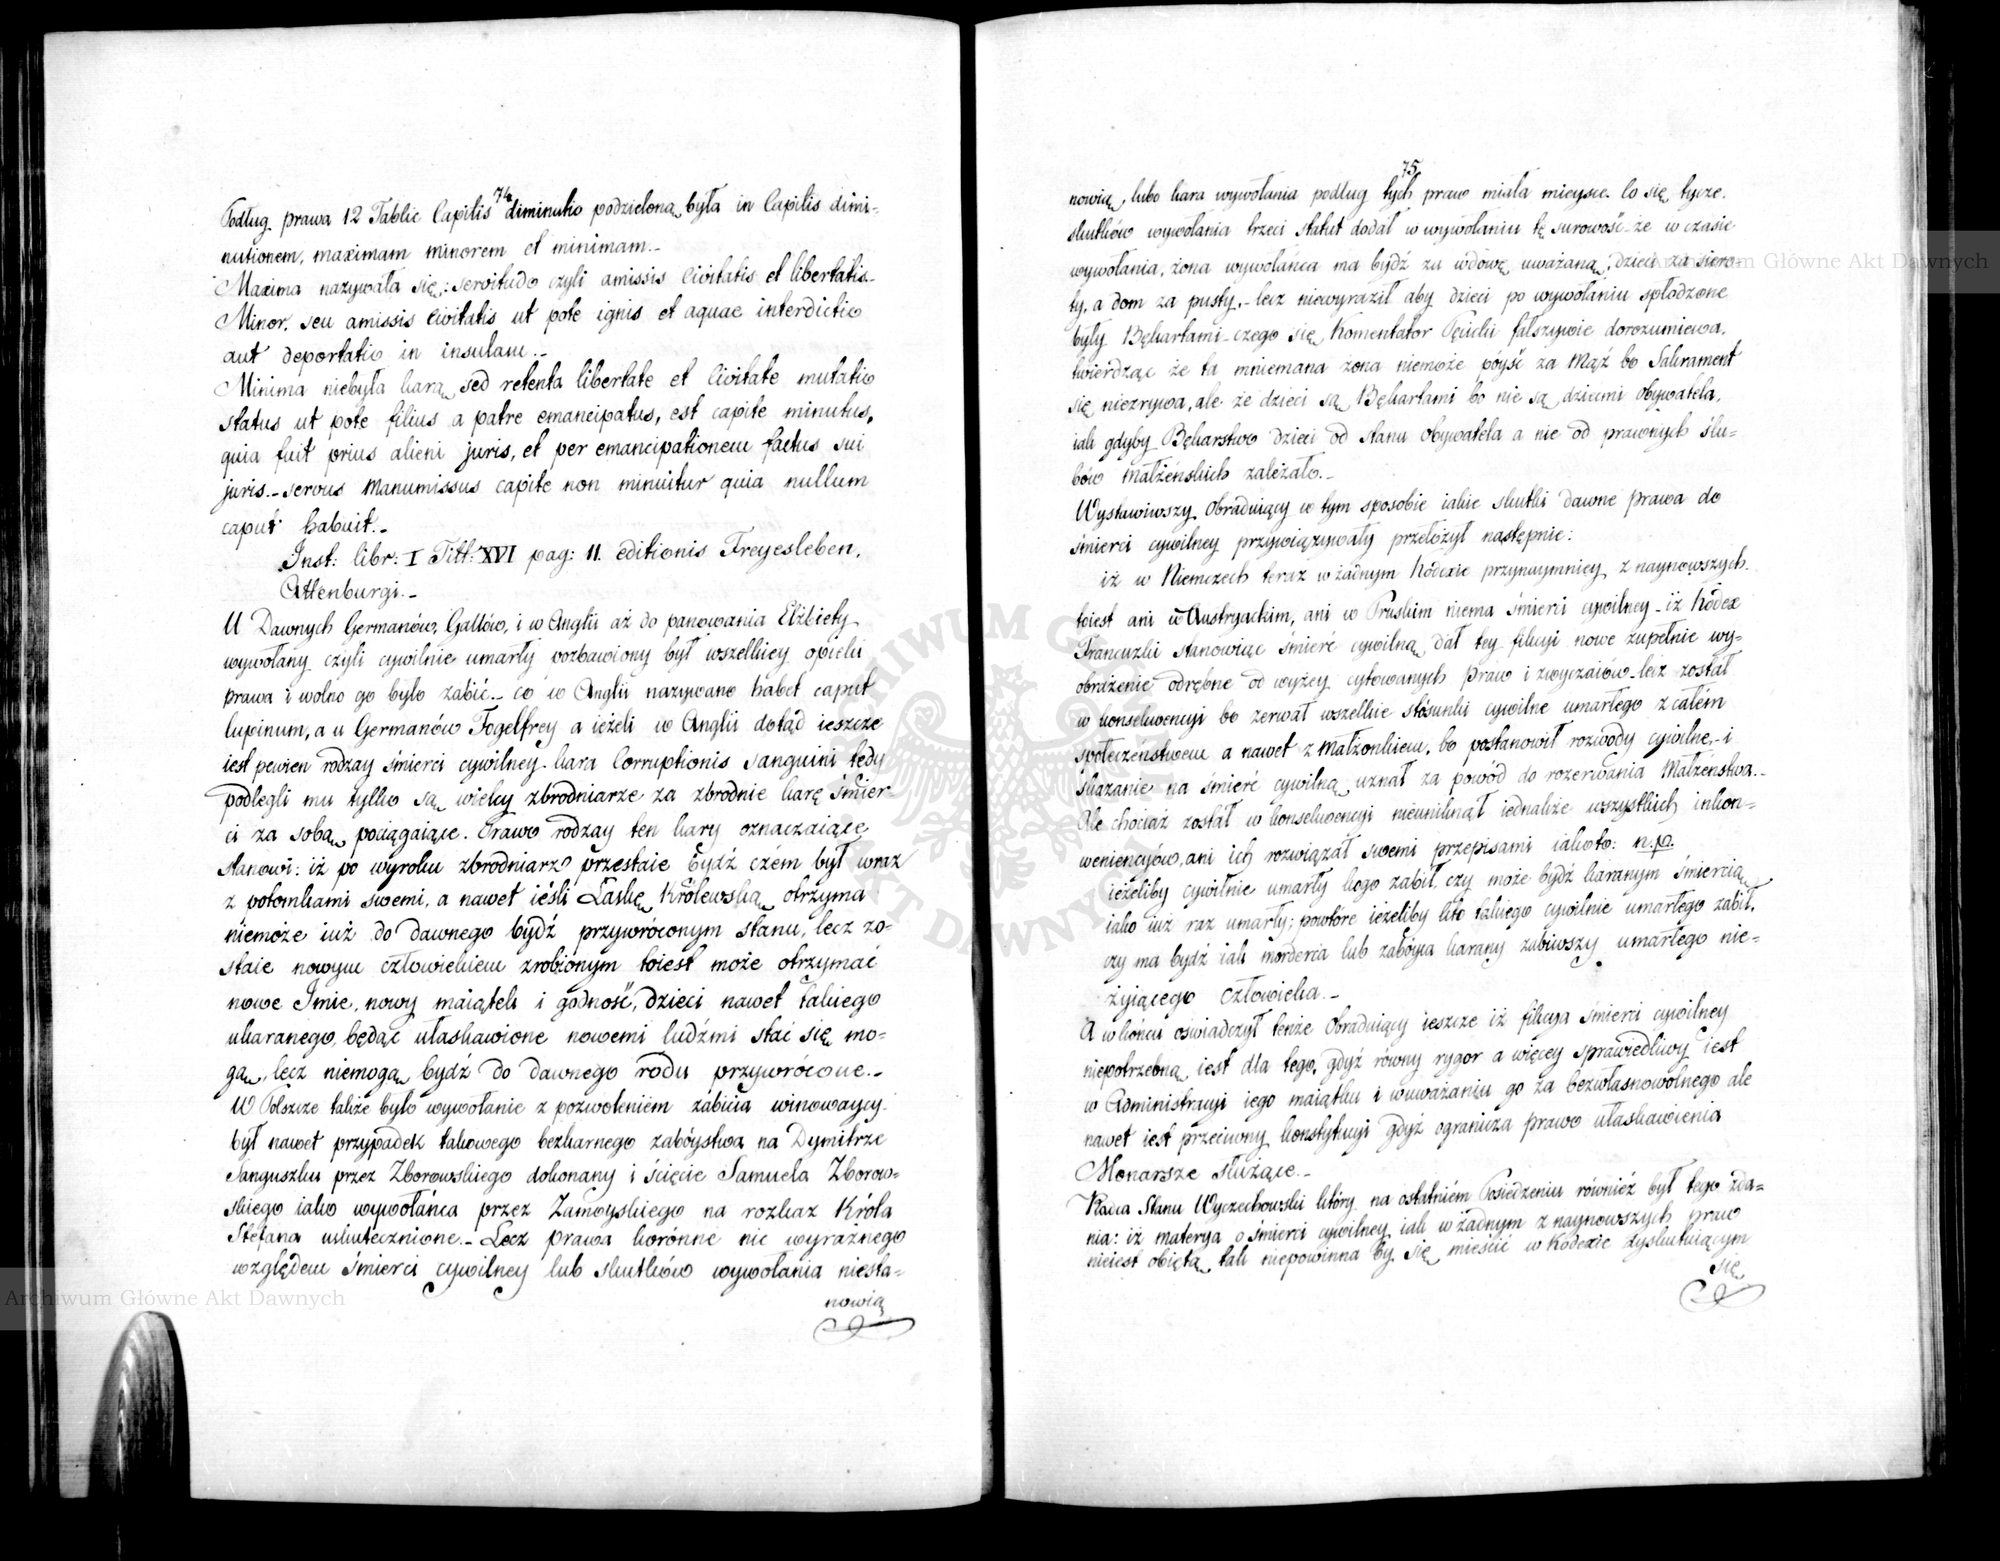 74
Podług prawa 12 Tablic Capitis diminutio podzielona była in Capitis dimi-
nutionem, maximam minorem et minimam._
Maxima nazywała się: servitudo czyli amissis Civitatis et libertatis._
Minor, seu amissis Civitatis ut pote ignis et aquae interdictio
aut deportatio in insulam._
Minima niebyła karą sed retenta libertate et Civitate mutatio
status ut pote filius a patre emancipatus, est capite minutus,
quia fuit prius alieni juris, et per emancipationem factus sui
juris._ servus manumissus capite non minuitur quia nullum
caput habuit._
Inst: libr: I Titt: XVI pag: 11. editionis Freyesleben,
Attenburgi._
U Dawnych Germanów, Gallów, i w Anglii aż do panowania Elżbiety
wywołany czyli cywilnie umarły pozbawiony był wszelkiey opieki
prawa i wolno go było zabić._ co w Anglii nazywano habet caput
lupinum, a u Germanów Fogelfrey a ieżeli w Anglii dotąd ieszcze
iest pewien rodzay śmierci cywilney kara Corruptionis sanguini tedy
podlegli mu tylko są wielcy zbrodniarze za zbrodnie karę śmier-
ci za sobą pociągaiące. Prawo rodzay ten kary oznaczaiące
stanowi: iż po wyroku zbrodniarz przestaie bydź czém był wraz
z potomkami swemi, a nawet ieśli Łaskę Królewską otrzyma
niemoże iuż do dawnego bydź przywróconym stanu, lecz zo-
staie nowym człowiekiem zrobionym toiest może otrzymać
nowe Imie, nowy maiątek i godność, dzieci nawet takiego
ukaranego, będąc ułaskawione nowemi ludźmi stać się mo-
gą, lecz niemogą bydź do dawnego rodu przywrócone._
W Polszcze także było wywołanie z pozwoleniem zabicia winowaycy
był nawet przypadek takowego bezkarnego zabóystwa na Dymitrze
Sanguszku przez Zborowskiego dokonany i ścięcie Samuela Zborow-
skiego iako wywołańca przez Zamoyskiego na rozkaz Króla
Stefana uskutecznione._ Lecz prawa koronne nic wyraźnego
względem śmierci cywilney lub skutków wywołania niesta-
nowią
75.
nowią, lubo kara wywołania podług tych praw miała mieysce. Co się tycze
skutków wywołania trzeci statut dodał w wywołaniu tę surowość że w czasie
wywołania, żona wywołańca ma bydź za wdowę uważaną, dzieci za siero-
ty, a dom za pusty,_ lecz niewyraził aby dzieci po wywołaniu spłodzone
były Bękartami czego się Komentator fałszywie dorozumiewa,
twierdząc że ta mniemana żona niemoże póyść za Mąż bo Sakrament
się niezrywa, ale że dzieci są Bękartami bo nie są dziećmi Obywatela,
iak gdyby Bękarstwo dzieci od stanu obywatela a nie od prawnych ślu-
bów małżeńskich zależało._
Wystawiwszy Obraduiący w tym sposobie iakie skutki dawne prawa do
śmierci cywilney przywiązywały przełożył następnie:
iż w Niemczech teraz w żadnym Kodexie przynaymniey z naynowszych
toiest ani w Austryackim, ani w Pruskim niema śmierci cywilney_ iż Kodex
Francuzki stanowiąc śmierć cywilną, dał tey fikcyi nowe zupełnie wy-
obrażenie odrębne od wyżey cytowanych praw i zwyczaiów_ lecz został
w konsekwencyi bo zerwał wszelkie stosunki cywilne umarłego z całém
społeczeństwem a nawet z małżonkiem, bo postanowił rozwody cywilne,_ i
skazanie na śmierć cywilną uznał za powód do rozerwania Małżeństwa._
Ale chociaż został w konsekwencyi nieuniknął iednakże wszystkich inkon-
weniencyów, ani ich rozwiązał swemi przepisami iakoto: n.p.
ieżeliby cywilnie umarły kogo zabił, czy może bydź karanym śmiercią
iako iuż raz umarły; powtóre ieżeliby kto takiego cywilnie umarłego zabił,
czy ma bydź iak morderca lub zabóyca karany zabiwszy umarłego nie-
żyiącego człowieka._
A w końcu oświadczył tenże Obraduiący ieszcze iż fikcya śmierci cywilney
niepotrzebną iest dla tego, gdyż równy rygor a więcey sprawiedliwy iest
w Administracyi iego maiątku i uważaniu go za bezwłasnowolnego ale
nawet iest przeciwny konstytucyi gdyż ogranicza prawo ułaskawienia
Monarsze służące._
Radca Stanu Wyczechowski który na ostatniém Posiedzeniu również był tego zda-
nia: iż materya o śmierci cywilney iak w żadnym z naynowszych praw
nieiest obiętą, tak niepowinna by się mieścić w Kodexie dyskutuiącym
się
ARCHIWUM GŁÓWNE AKT DAWNYCH
Archiwum Główne Akt Dawnych
Archiwum Główne Akt Dawnych